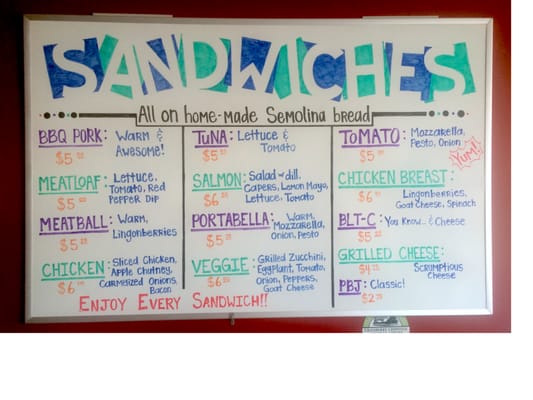 SANDWICHES
All on home-made Semolina bread
BBQ PORK: Warm &
Awesome!
$5
MEATLOAF: Lettuce,
Tomato, Red
Pepper Dip
$5
MEATBALL: Warm,
Lingonberries
$5
CHICKEN: Sliced Chicken,
Apple Chutney,
Carmelized Onions,
Bacon
$6
TUNA: Lettuce &
Tomato
$5
SALMON: Salad w dill,
Capers, Lemon Mayo,
Lettuce, Tomato
$6
PORTABELLA: Warm,
Mozzarella,
Onion, Pesto
$5
VEGGIE: Grilled Zucchini,
Eggplant, Tomato,
Onion, Peppers,
Goat Cheese
$6
TOMATO: Mozzarella,
Pesto, Onion
$5
YUM!
CHICKEN BREAST:
$6
Lingonberries,
Goat Cheese, Spinach
BLT-C: You Know.. & Cheese
$5
GRILLED CHEESE:
$4
Scrumptious
Cheese
PBJ: Classic!
$2
ENJOY EVERY SANDWICH!!